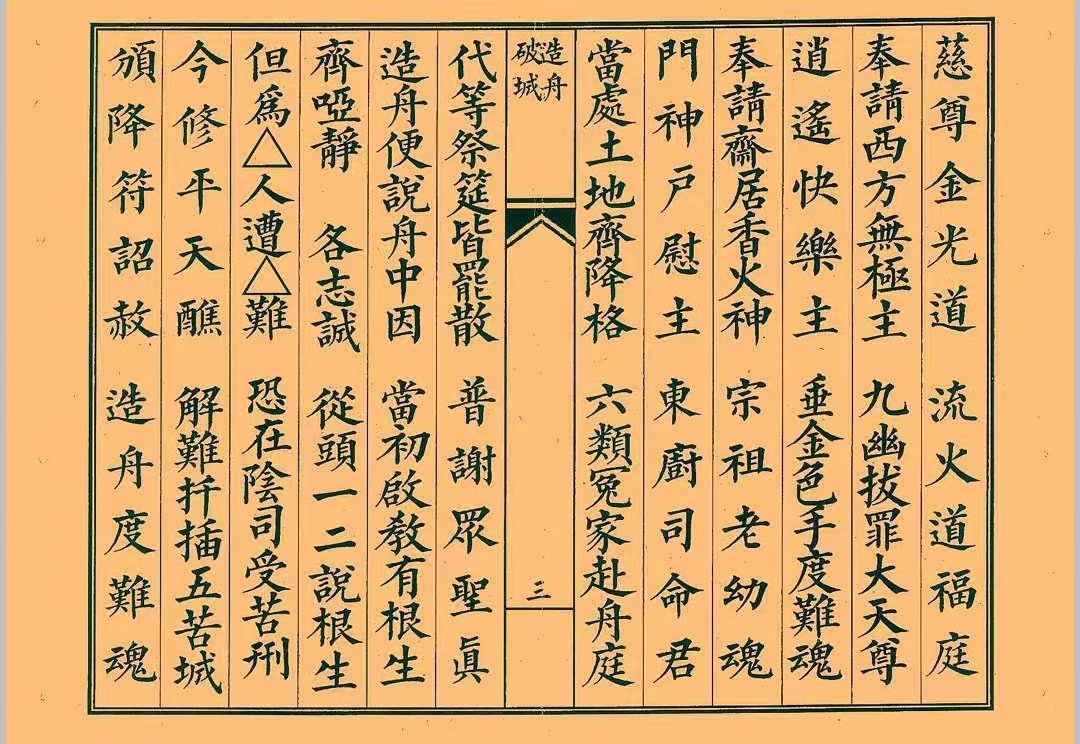 慈尊金光道　流火道福庭
奉請西方無極主　九幽拔罪大天尊
逍遙快樂主　垂金色手度難魂
奉請齋居香火神　宗祖老幼魂
門神戶慰主　東廚司命君
當處土地齊降格　六類冤家赴舟庭
造舟
破城
三
代等祭筵皆罷散　普謝眾聖眞
造舟便說舟中因　當初啟教有根生
齊啞靜　各志誠　從頭一二說根生
但爲△人遭△難　恐在陰司受苦刑
今修平天醮　解難扦插五苦城
頒降符詔赦　造舟度難魂